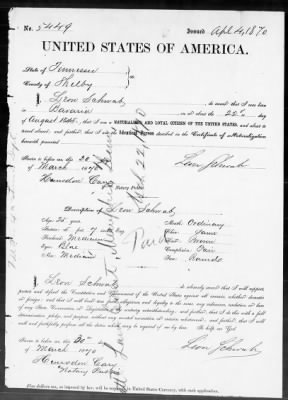 No. 5449 Issued Apl 4, 1870
UNITED STATES OF AMERICA.
State of Tennessee
County of Shelby
I, Leon Schwab, do swear that I was born
in Bavaria on or about the 22nd day
of August 1845, that I am a NATURALIZED AND LOYAL CITIZEN OF THE UNITED STATES, and about to
travel abroad; and further that I am the Identical Person described in the Certificate of Naturalization
herewith presented.
Sworn to before me this 20
March 1870
Leon Schwab
Notary Public
Description of Leon Schwab
Age: 25 years Mouth: Ordinary
Stature: 5 feet 7
Forehead: Medium
Eyes: Blue Complexion: Fair
Nose: Medium Face: Round
I, Leon Schwab, do solemnly swear that I will support,
protect and defend the Constitution and Government of the United States against all enemies, whether domestic
or foreign; and that I will bear true faith, allegiance and loyalty to the same, any ordinance, resolution or law
of any State Convention or Legislature to the contrary notwithstanding; and further, that I do this with a full
determination, pledge and purpose, without any mental reservation or evasion whatsoever; and further, that I will
well and faithfully perform all the duties which may be required of me by law. So help me God.
Sworn to before me this 20
day of March 1870
Leon Schwab
Notary Public
Five dollars tax, as imposed by law, will be required in United States Currency, with each application.